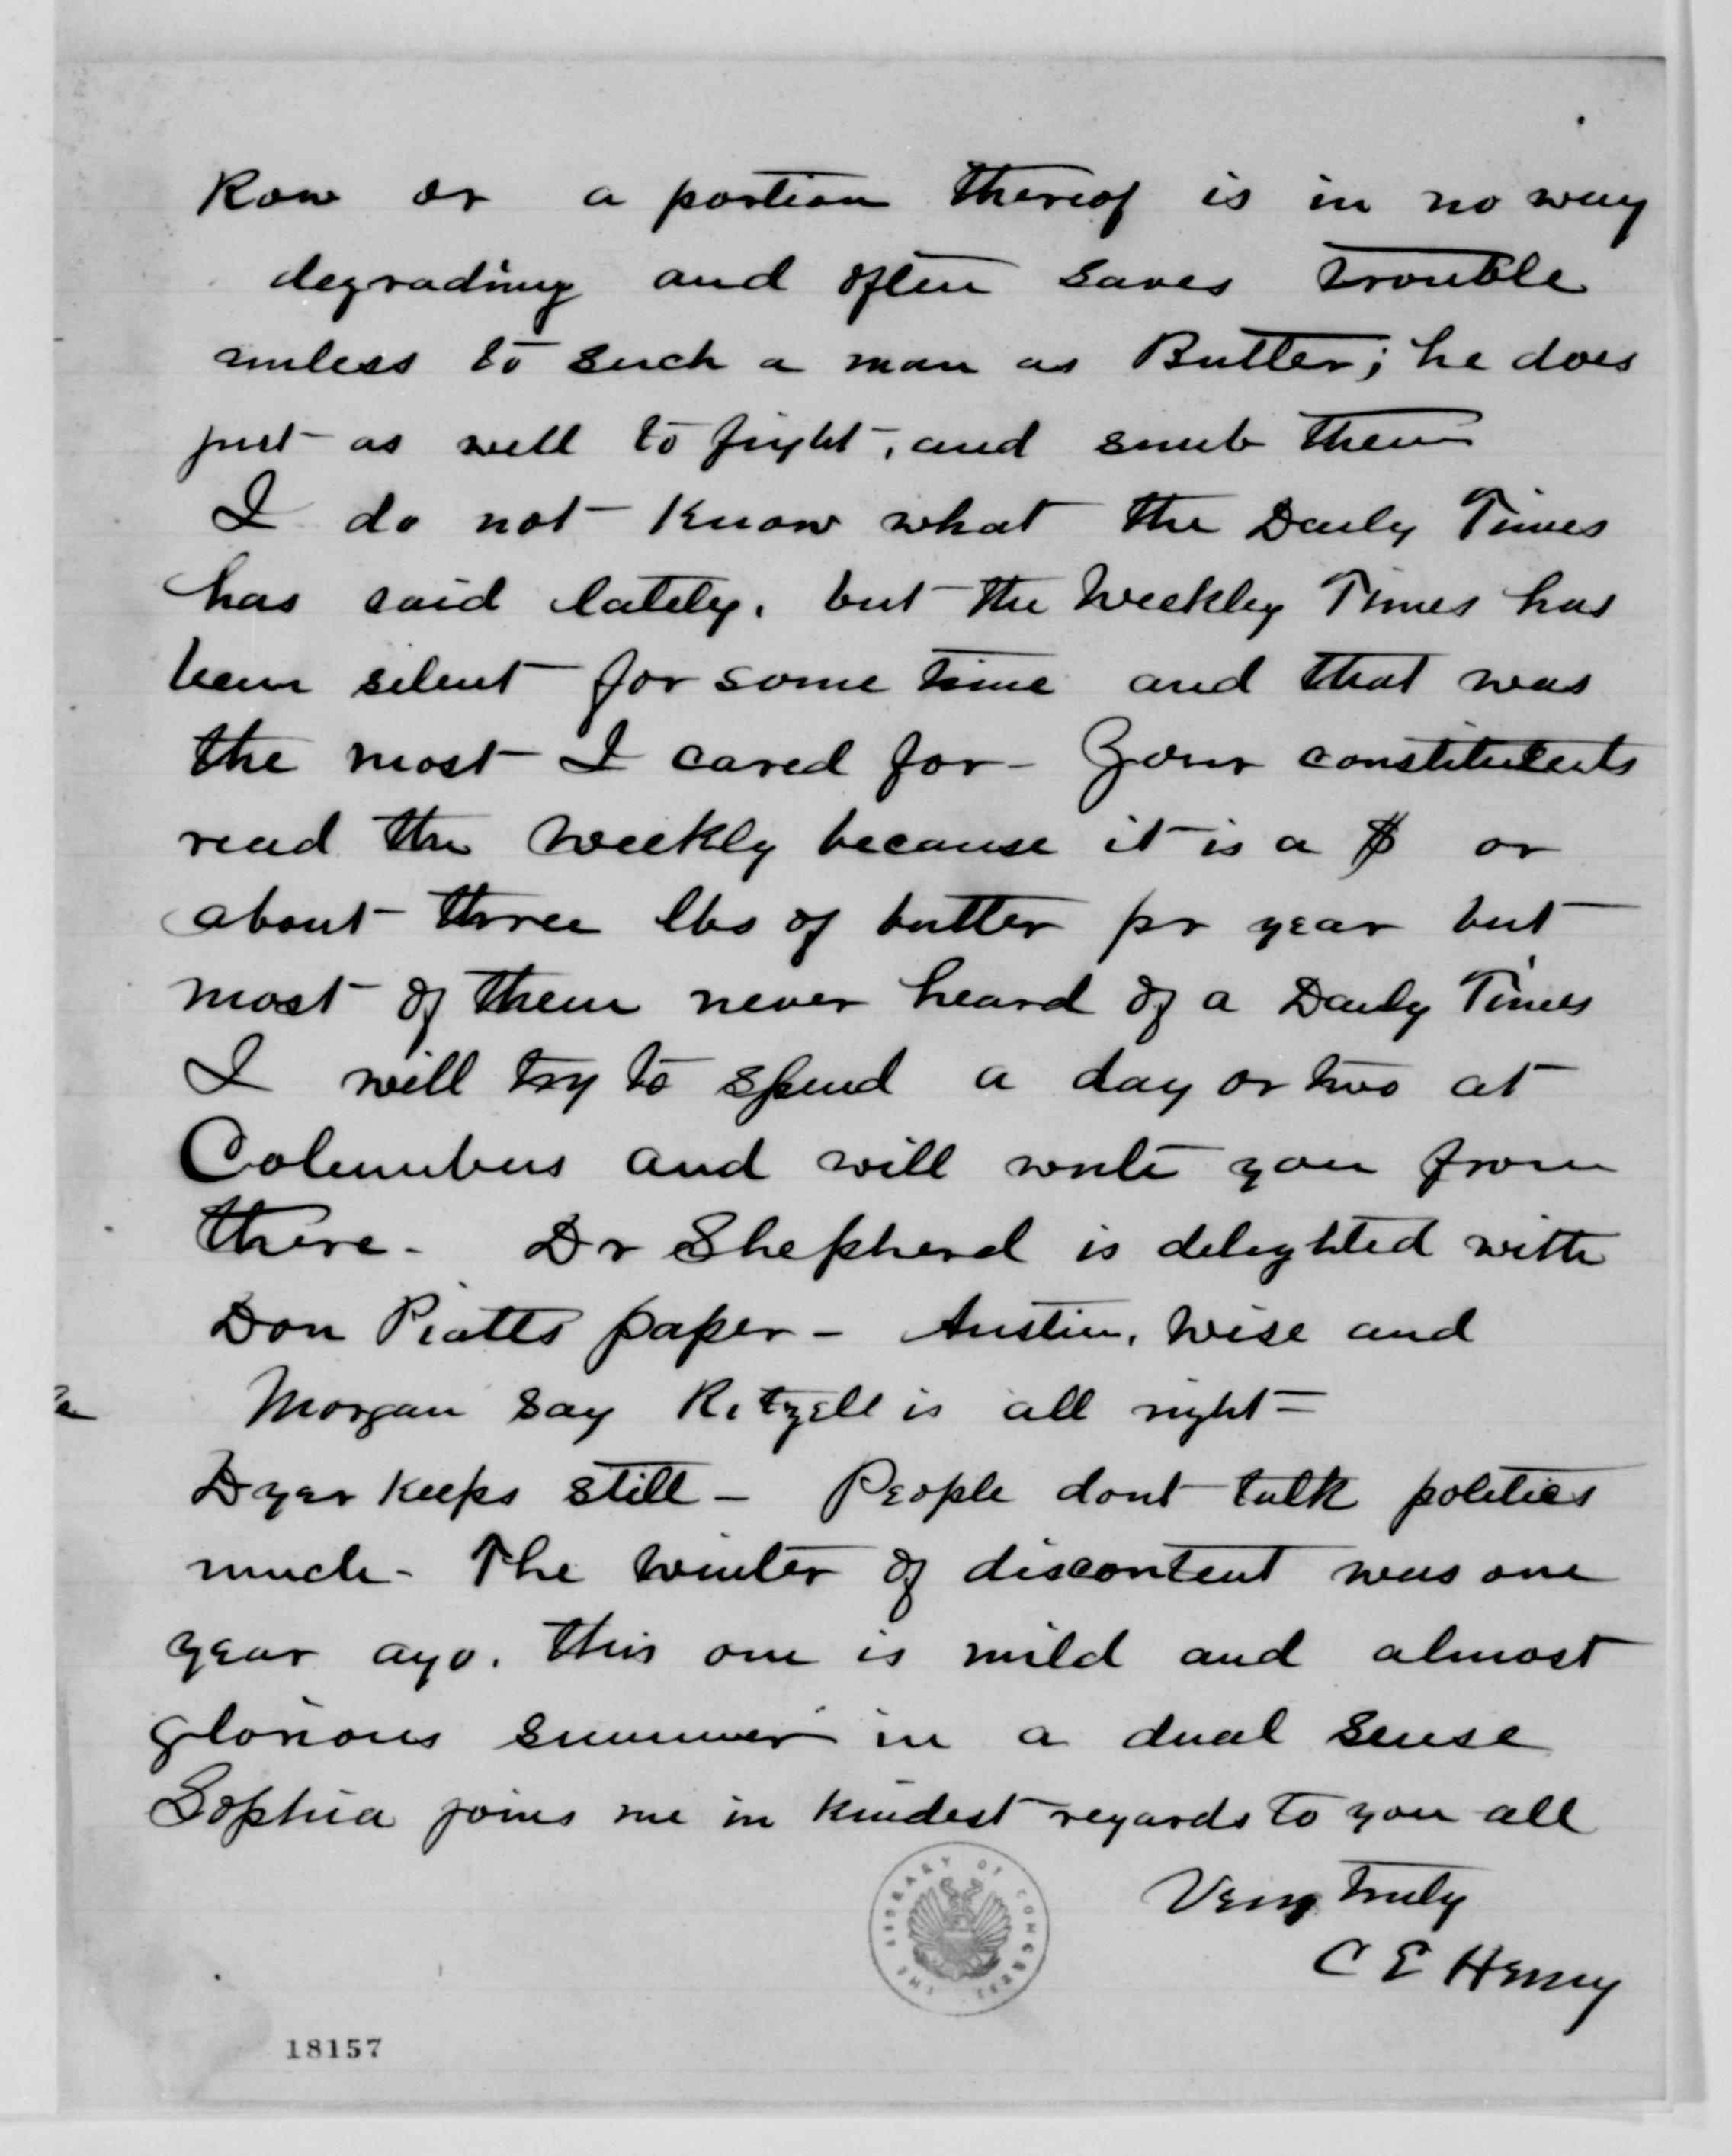 Row or a portion thereof is in no way
degrading and often saves trouble
unless to such a man as Butler; he does
just as well to fight, and snub them
I do not know what the Daily Times
has said lately. but the Weekly Times has
been silent for some time and that was
the most I cared for - Your constituents
read the Weekly because it is a $ or
about three lbs of butter pr year but
most of them never heard of a Daily Times
I will try to spend a day or two at
Columbus and will write you from
there. Dr Shepherd is delighted with
Don Piatts paper - Austin, Wise and
Morgan say Ritzell is all right -
Dyer keeps still - People dont talk politics
much - The winter of discontent was one
year ago. this one is mild and almost
glorious summer in a dual sense
Sophia joins me in kindest regards to you all
Very truly
C E Henry
THE LIBRARY OF CONGRESS
18157